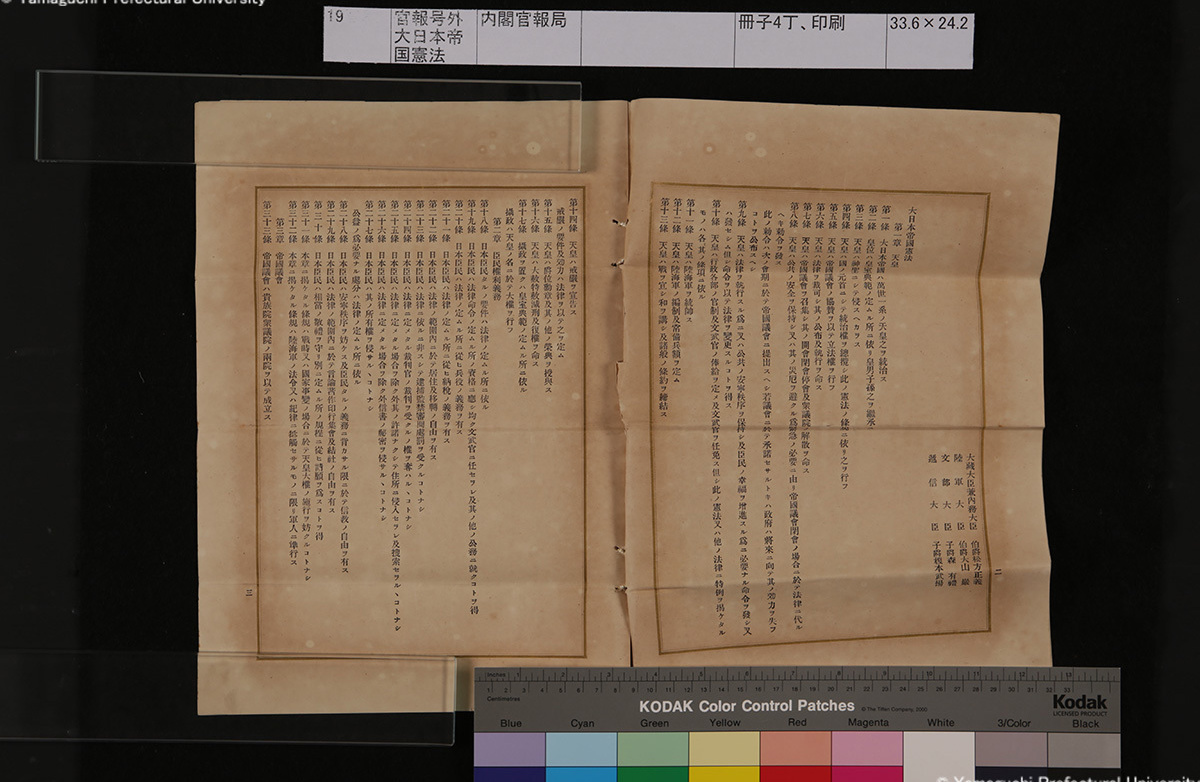 © Yamaguchi Prefectural University
19
官報号外
大日本帝
国憲法
内閣官報局
冊子4丁、印刷
33.6×24.2
大藏大臣兼內務大臣 伯爵松方正義
陸軍大臣 伯爵大山 巖
文部大臣 子爵森 有禮
遞信大臣 子爵榎本武揚
二
大日本帝國憲法
第一章 天皇
第一條 大日本帝國ハ萬世一系ノ天皇之ヲ統治ス
第二條 皇位ハ皇室典範ノ定ムル所ニ依リ皇男子孫之ヲ繼承ス
第三條 天皇ハ神聖ニシテ侵スヘカラス
第四條 天皇ハ國ノ元首ニシテ統治權ヲ總攬シ此ノ憲法ノ條規ニ依リ之ヲ行フ
第五條 天皇ハ帝國議會ノ協贊ヲ以テ立法權ヲ行フ
第六條 天皇ハ法律ヲ裁可シ其ノ公布及執行ヲ命ス
第七條 天皇ハ帝國議會ヲ召集シ其ノ開會閉會停會及衆議院ノ解散ヲ命ス
第八條 天皇ハ公共ノ安全ヲ保持シ又ハ其ノ災厄ヲ避クル爲緊急ノ必要ニ由リ帝國議會閉會ノ場合ニ於テ法律ニ代ル
ヘキ勅令ヲ發ス
此ノ勅令ハ次ノ會期ニ於テ帝國議會ニ提出スヘシ若議會ニ於テ承諾セサルトキハ政府ハ將來ニ向テ其ノ効力ヲ失フ
コトヲ公布スヘシ
第九條 天皇ハ法律ヲ執行スル爲ニ又ハ公共ノ安寧秩序ヲ保持シ及臣民ノ幸福ヲ增進スル爲ニ必要ナル命令ヲ發シ又
ハ發セシム但シ命令ヲ以テ法律ヲ變更スルコトヲ得ス
第十條 天皇ハ行政各部ノ官制及文武官ノ俸給ヲ定メ及文武官ヲ任免ス但シ此ノ憲法又ハ他ノ法律ニ特例ヲ揭ケタル
モノハ各〻其ノ條項ニ依ル
第十一條 天皇ハ陸海軍ヲ統帥ス
第十二條 天皇ハ陸海軍ノ編制及常備兵額ヲ定ム
第十三條 天皇ハ戰ヲ宣シ和ヲ講シ及諸般ノ條約ヲ締結ス
第十四條 天皇ハ戒嚴ヲ宣告ス
戒嚴ノ要件及効力ハ法律ヲ以テ之ヲ定ム
第十五條 天皇ハ爵位勳章及其ノ他ノ榮典ヲ授與ス
第十六條 天皇ハ大赦特赦減刑及復權ヲ命ス
第十七條 攝政ヲ置クハ皇室典範ノ定ムル所ニ依ル
攝政ハ天皇ノ名ニ於テ大權ヲ行フ
第二章 臣民權利義務
第十八條 日本臣民タルノ要件ハ法律ノ定ムル所ニ依ル
第十九條 日本臣民ハ法律命令ノ定ムル所ノ資格ニ應シ均ク文武官ニ任セラレ及其ノ他ノ公務ニ就クコトヲ得
第二十條 日本臣民ハ法律ノ定ムル所ニ從ヒ兵役ノ義務ヲ有ス
第二十一條 日本臣民ハ法律ノ定ムル所ニ從ヒ納稅ノ義務ヲ有ス
第二十二條 日本臣民ハ法律ノ範圍內ニ於テ居住及移轉ノ自由ヲ有ス
第二十三條 日本臣民ハ法律ニ依ルニ非スシテ逮捕監禁審問處罰ヲ受クルコトナシ
第二十四條 日本臣民ハ法律ニ定メタル裁判官ノ裁判ヲ受クルノ權ヲ奪ハルヽコトナシ
第二十五條 日本臣民ハ法律ニ定メタル場合ヲ除ク外其ノ許諾ナクシテ住所ニ侵入セラレ及搜索セラルヽコトナシ
第二十六條 日本臣民ハ法律ニ定メタル場合ヲ除ク外信書ノ祕密ヲ侵サルヽコトナシ
第二十七條 日本臣民ハ其ノ所有權ヲ侵サルヽコトナシ
公益ノ爲必要ナル處分ハ法律ノ定ムル所ニ依ル
第二十八條 日本臣民ハ安寧秩序ヲ妨ケス及臣民タルノ義務ニ背カサル限ニ於テ信敎ノ自由ヲ有ス
第二十九條 日本臣民ハ法律ノ範圍內ニ於テ言論著作印行集會及結社ノ自由ヲ有ス
第三十條 日本臣民ハ相當ノ敬禮ヲ守リ別ニ定ムル所ノ規程ニ從ヒ請願ヲ爲スコトヲ得
第三十一條 本章ニ揭ケタル條規ハ戰時又ハ國家事變ノ場合ニ於テ天皇大權ノ施行ヲ妨クルコトナシ
第三十二條 本章ニ揭ケタル條規ハ陸海軍ノ法令又ハ紀律ニ牴觸セサルモノニ限リ軍人ニ準行ス
第三章 帝國議會
第三十三條 帝國議會ハ貴族院衆議院ノ兩院ヲ以テ成立ス
三
KODAK Color Control Patches
© The Tiffen Company, 2000
Kodak
LICENSED PRODUCT
Inches
Centimetres
Blue Cyan Green Yellow Red Magenta White 3/Color Black
© Yamaguchi Prefectural University